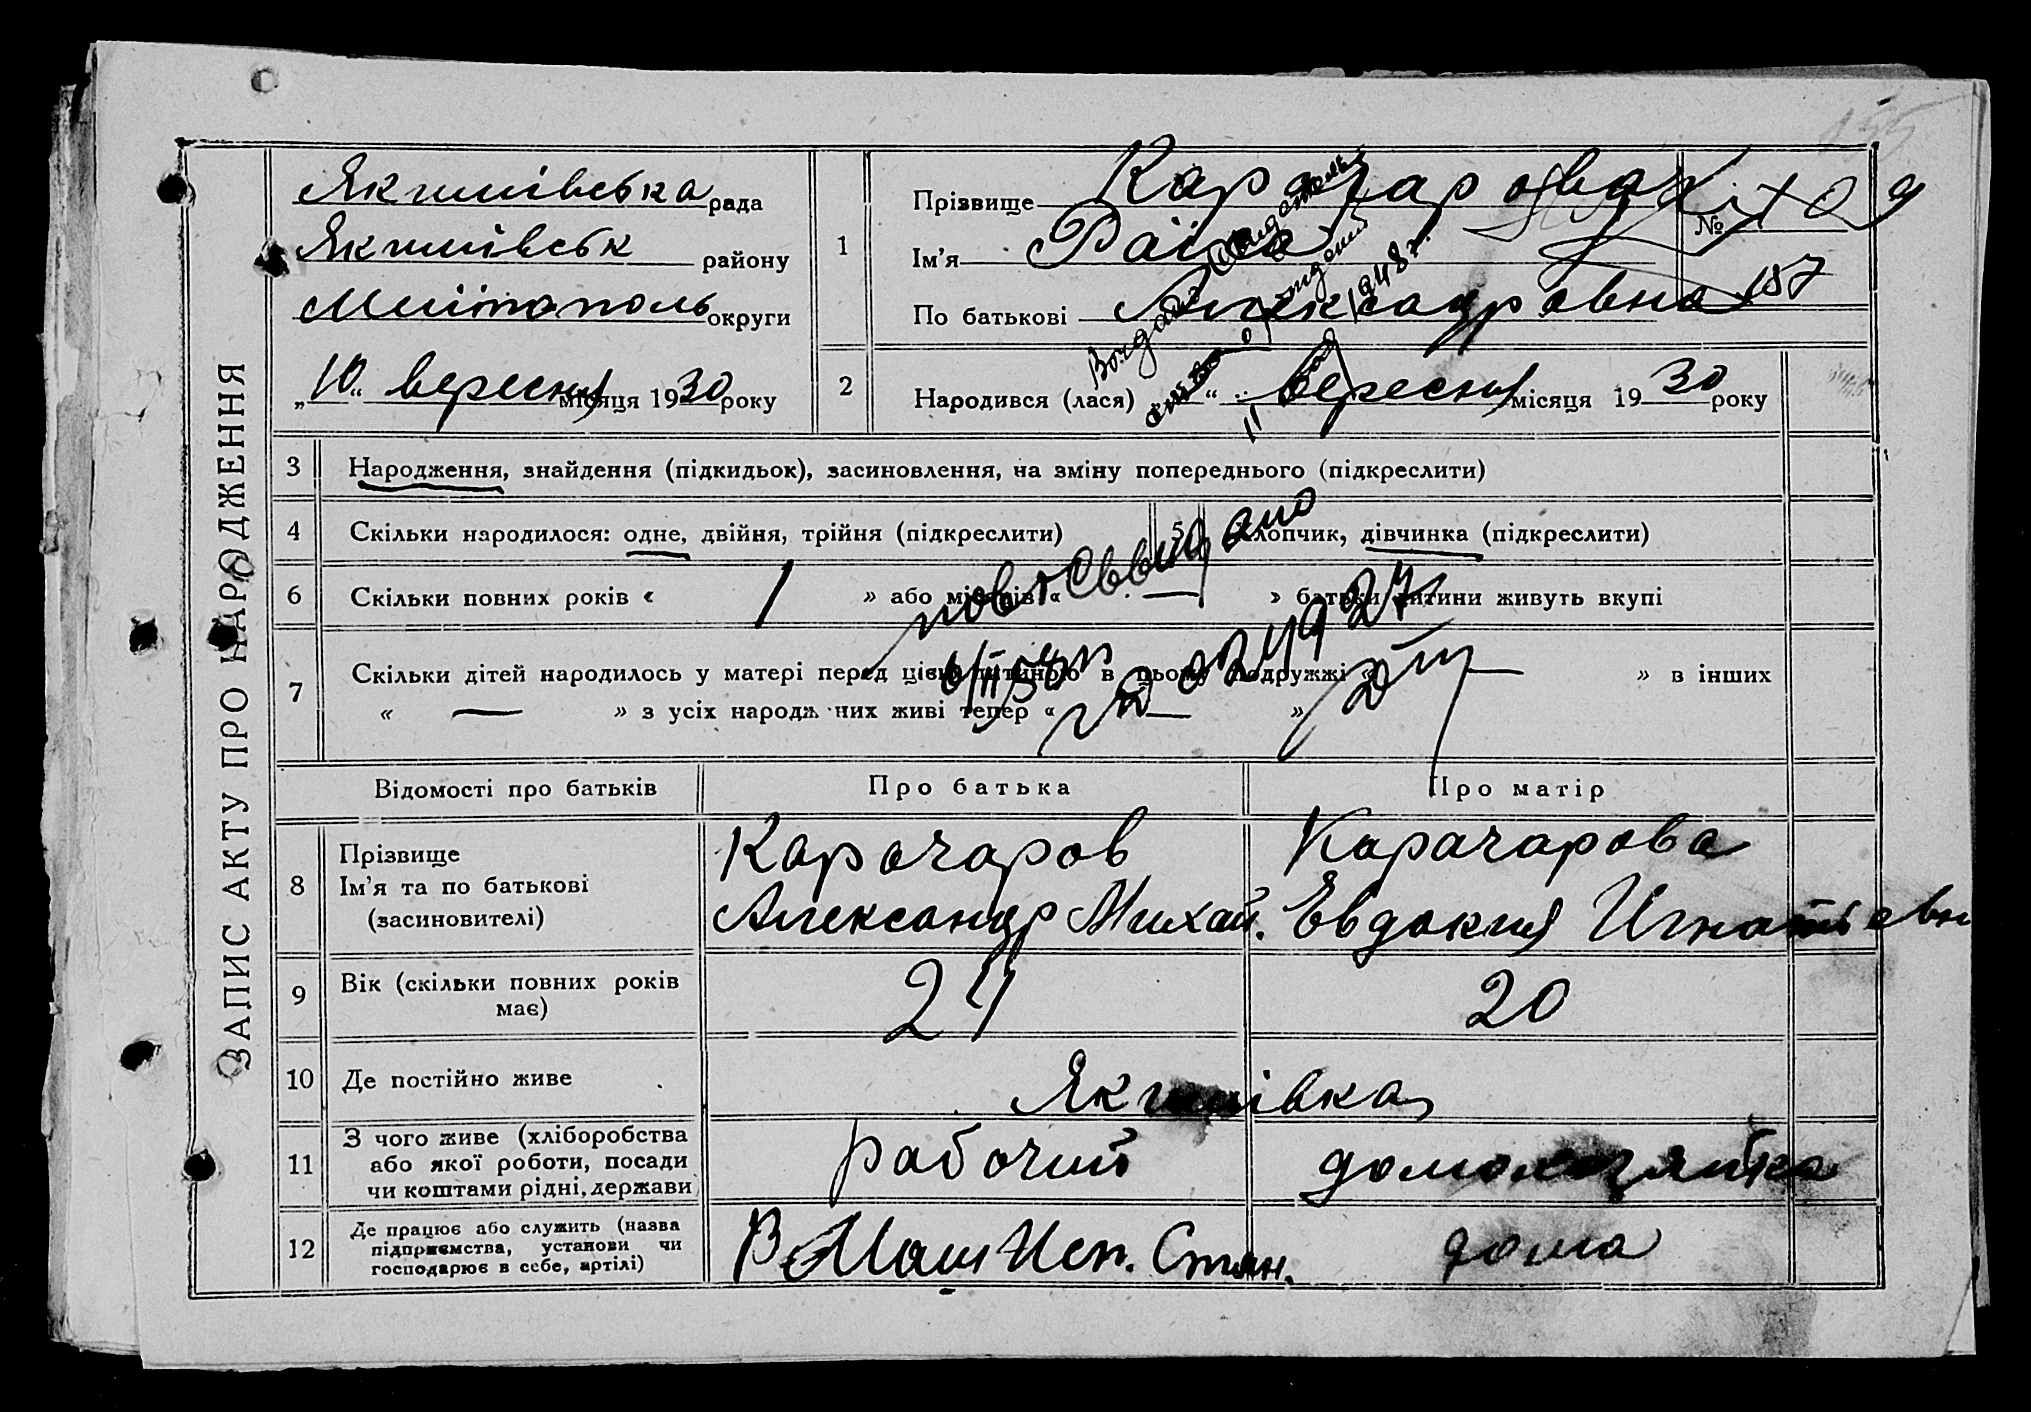 ЗАПИС АКТУ ПРО НАРОДЖЕННЯ
Якимівська рада
Якимівськ району
Мелітополь округи
„10“ вересня місяця 1930 року
1
Прізвище Карачарова
№
Ім'я Раїса
По батькові Александровна 157
2
Народився (лася) „ “ вересня місяця 1930 року
1948 г.
3 Народження, знайдення (підкидьок), засиновлення, на зміну попереднього (підкреслити)
4 Скільки народилося: одне, двійня, трійня (підкреслити) 5 Хлопчик, дівчинка (підкреслити)
6 Скільки повних років « 1 » або місяців « — » батьки дитини живуть вкупі
7 Скільки дітей народилось у матері перед цією дитиною в цьому подружжі « — » в інших
« — » з усіх народжених живі тепер « — »
Відомості про батьків Про батька Про матір
8 Прізвище
Ім'я та по батькові
(засиновителі)
Карачаров
Александр Михай.
Карачарова
Евдокия Игнатьевн
9 Вік (скільки повних років має) 24 20
10 Де постійно живе Якимівка
11 З чого живе (хліборобства
або якої роботи, посади
чи коштами рідні, держави
рабочий домохозяйка
12 Де працює або служить (назва
підприємства, установи чи
господарює в себе, артілі)
В Маш Исп. Стан. дома